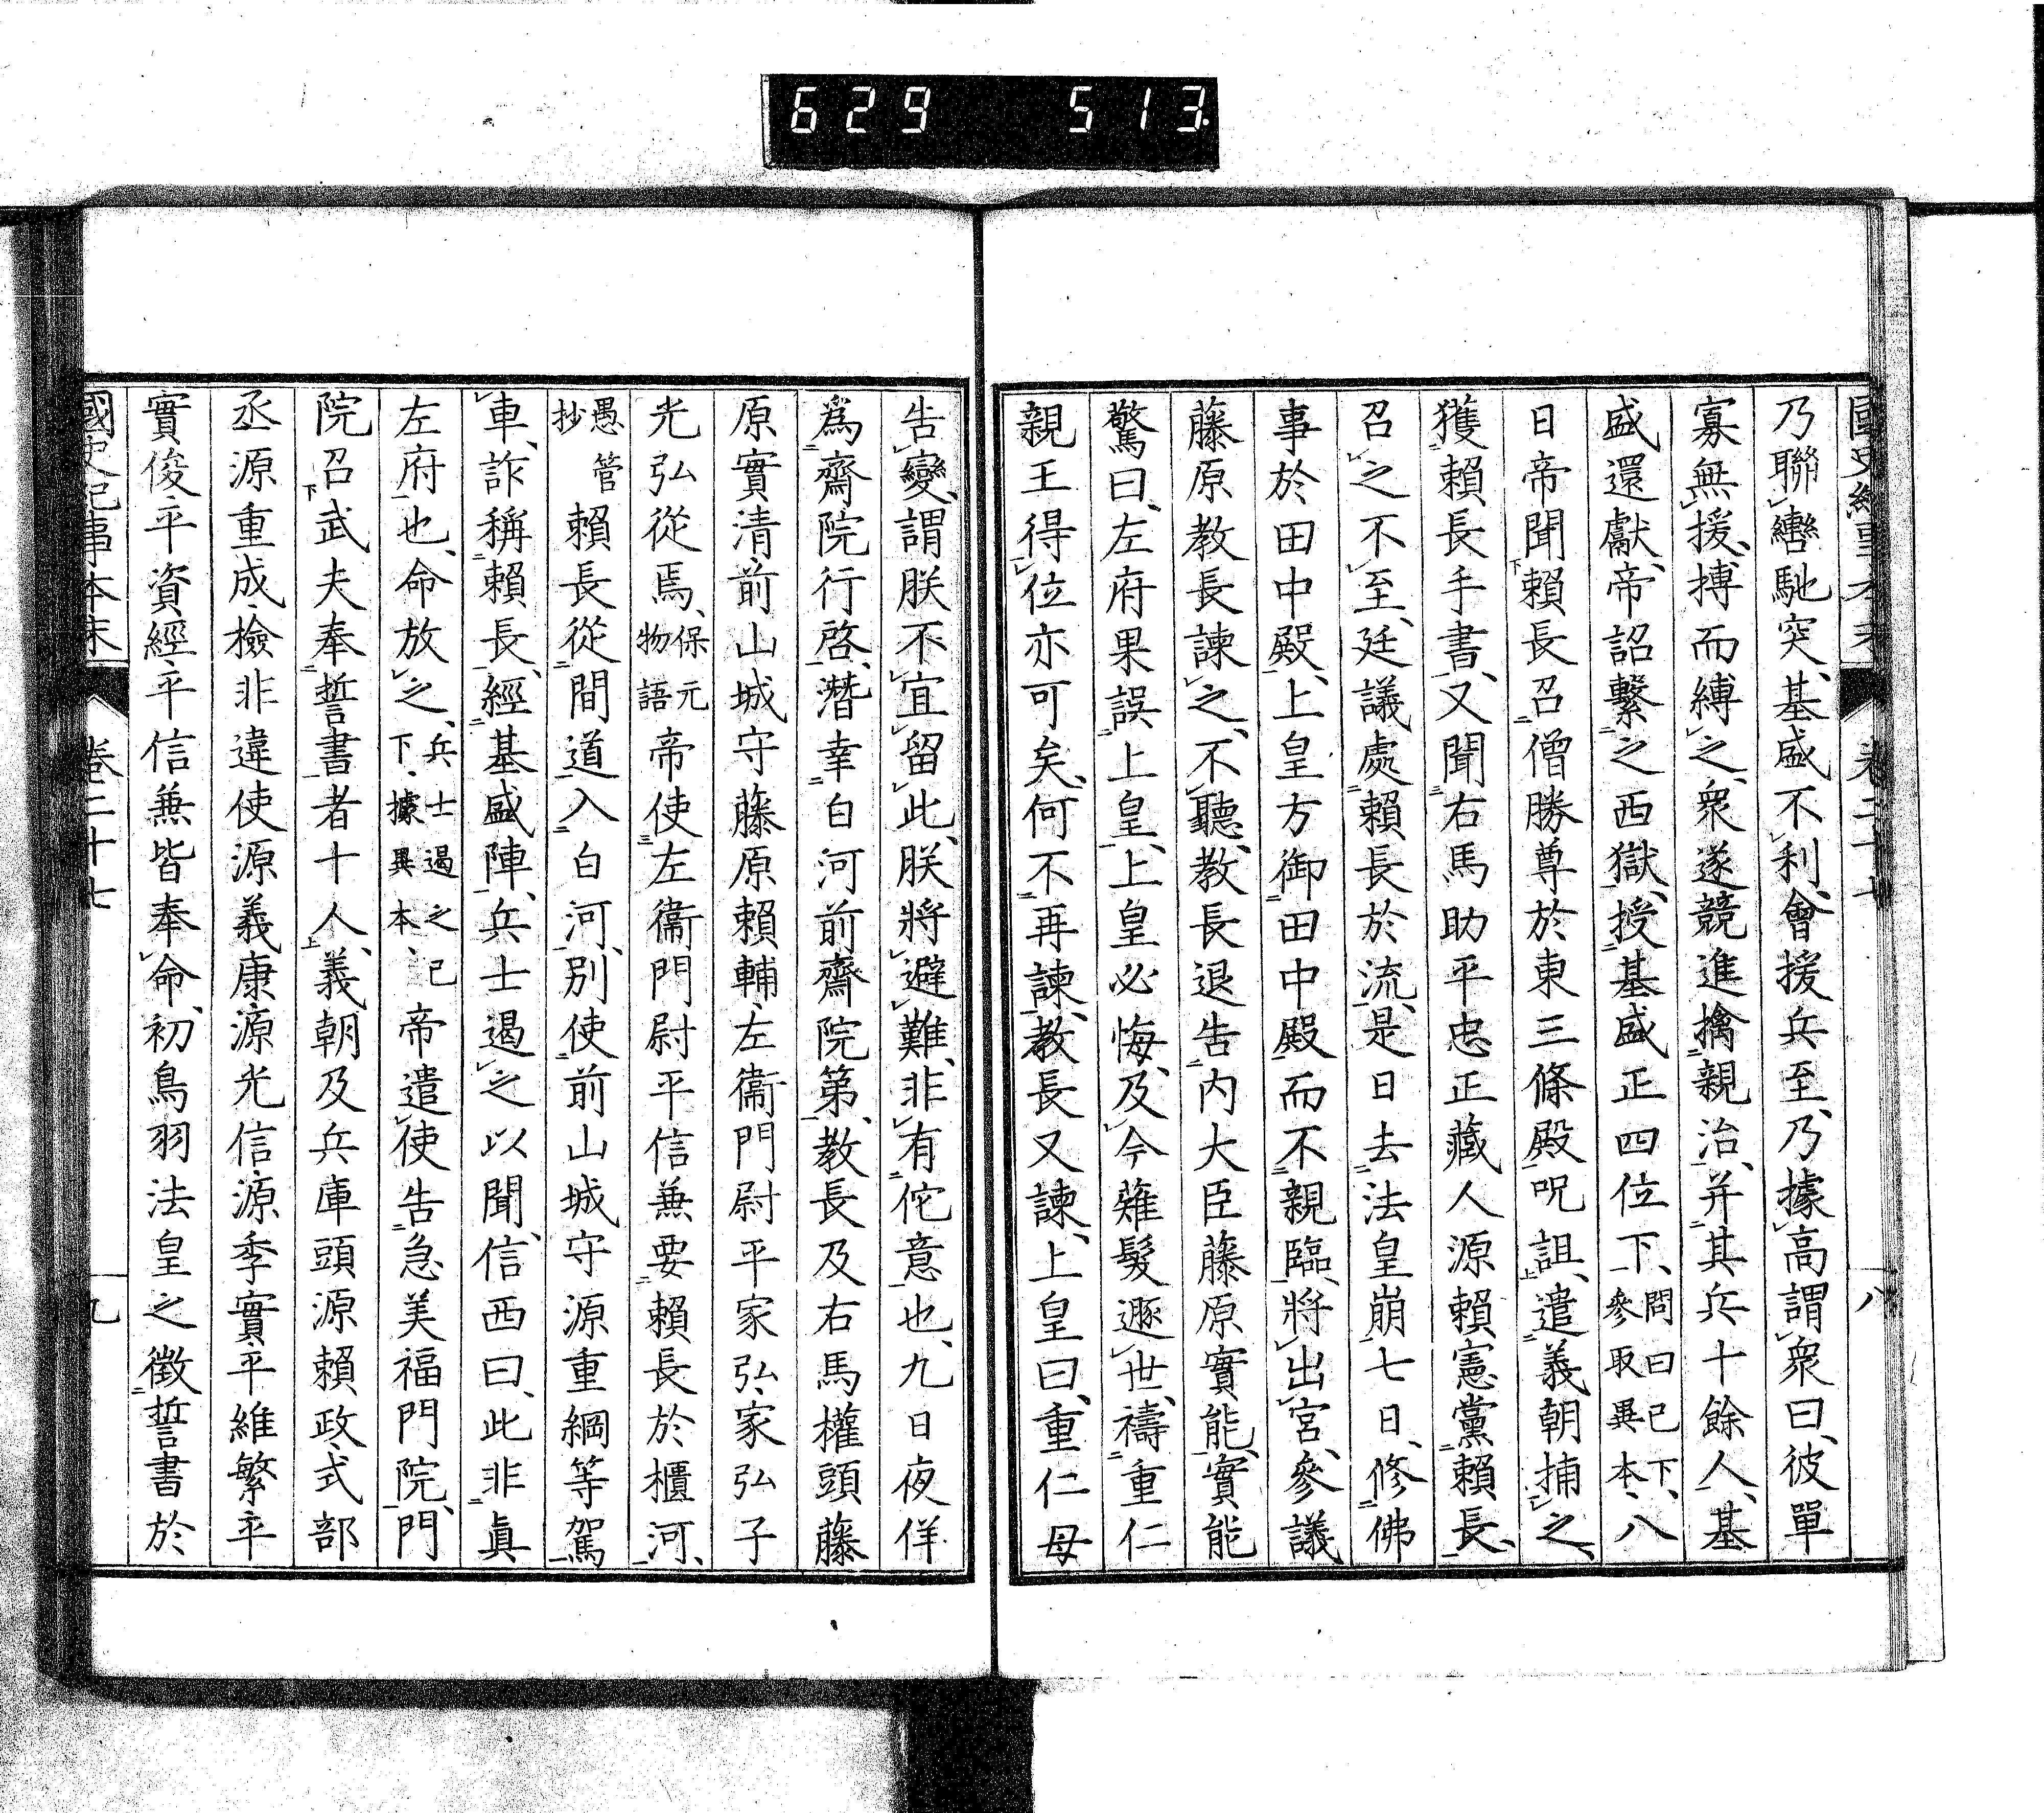 629 513
國史紀事本末 卷二十七 八
乃聯轡馳突、基盛不利、會援兵至、乃據高謂衆曰、彼單
寡無援、搏而縛之、衆遂競進擒親治、并其兵十餘人、基
盛還獻、帝詔繫之西獄、授基盛正四位下、問曰已下、參取異本、八
日帝聞賴長召僧勝尊於東三條殿呪詛、遣義朝捕之、
獲賴長手書、又聞右馬助平忠正藏人源賴憲黨賴長、
召之不至、廷議處賴長於流、是日去法皇崩七日、修佛
事於田中殿、上皇方御田中殿而不親臨、將出宮、參議
藤原教長諫之、不聽、教長退告内大臣藤原實能、實能
驚曰、左府果誤上皇、上皇必悔、及今薙髮遯世、禱重仁
親王得位亦可矣、何不再諫、教長又諫、上皇曰、重仁母
告變、謂朕不宜留此、朕將避難、非有佗意也、九日夜佯
爲齋院行啓、潛幸白河前齋院第、教長及右馬權頭藤
原實清前山城守藤原賴輔、左衞門尉平家弘、家弘子
光弘從焉、保元物語帝使左衞門尉平信兼要賴長於櫃河、
愚管抄賴長從間道入白河、別使前山城守源重綱等駕
車、詐稱賴長、經基盛陣、兵士遏之以聞、信西曰、此非眞
左府也、命放之、兵士遏之已下、據異本、帝遣使告急美福門院、門
院召武夫奉誓書者十人、義朝及兵庫頭源賴政、式部
丞源重成、檢非違使源義康、源光信、源季實、平維繁、平
實俊、平資經、平信兼皆奉命、初鳥羽法皇之徵誓書於
國史紀事本末 卷二十七 九